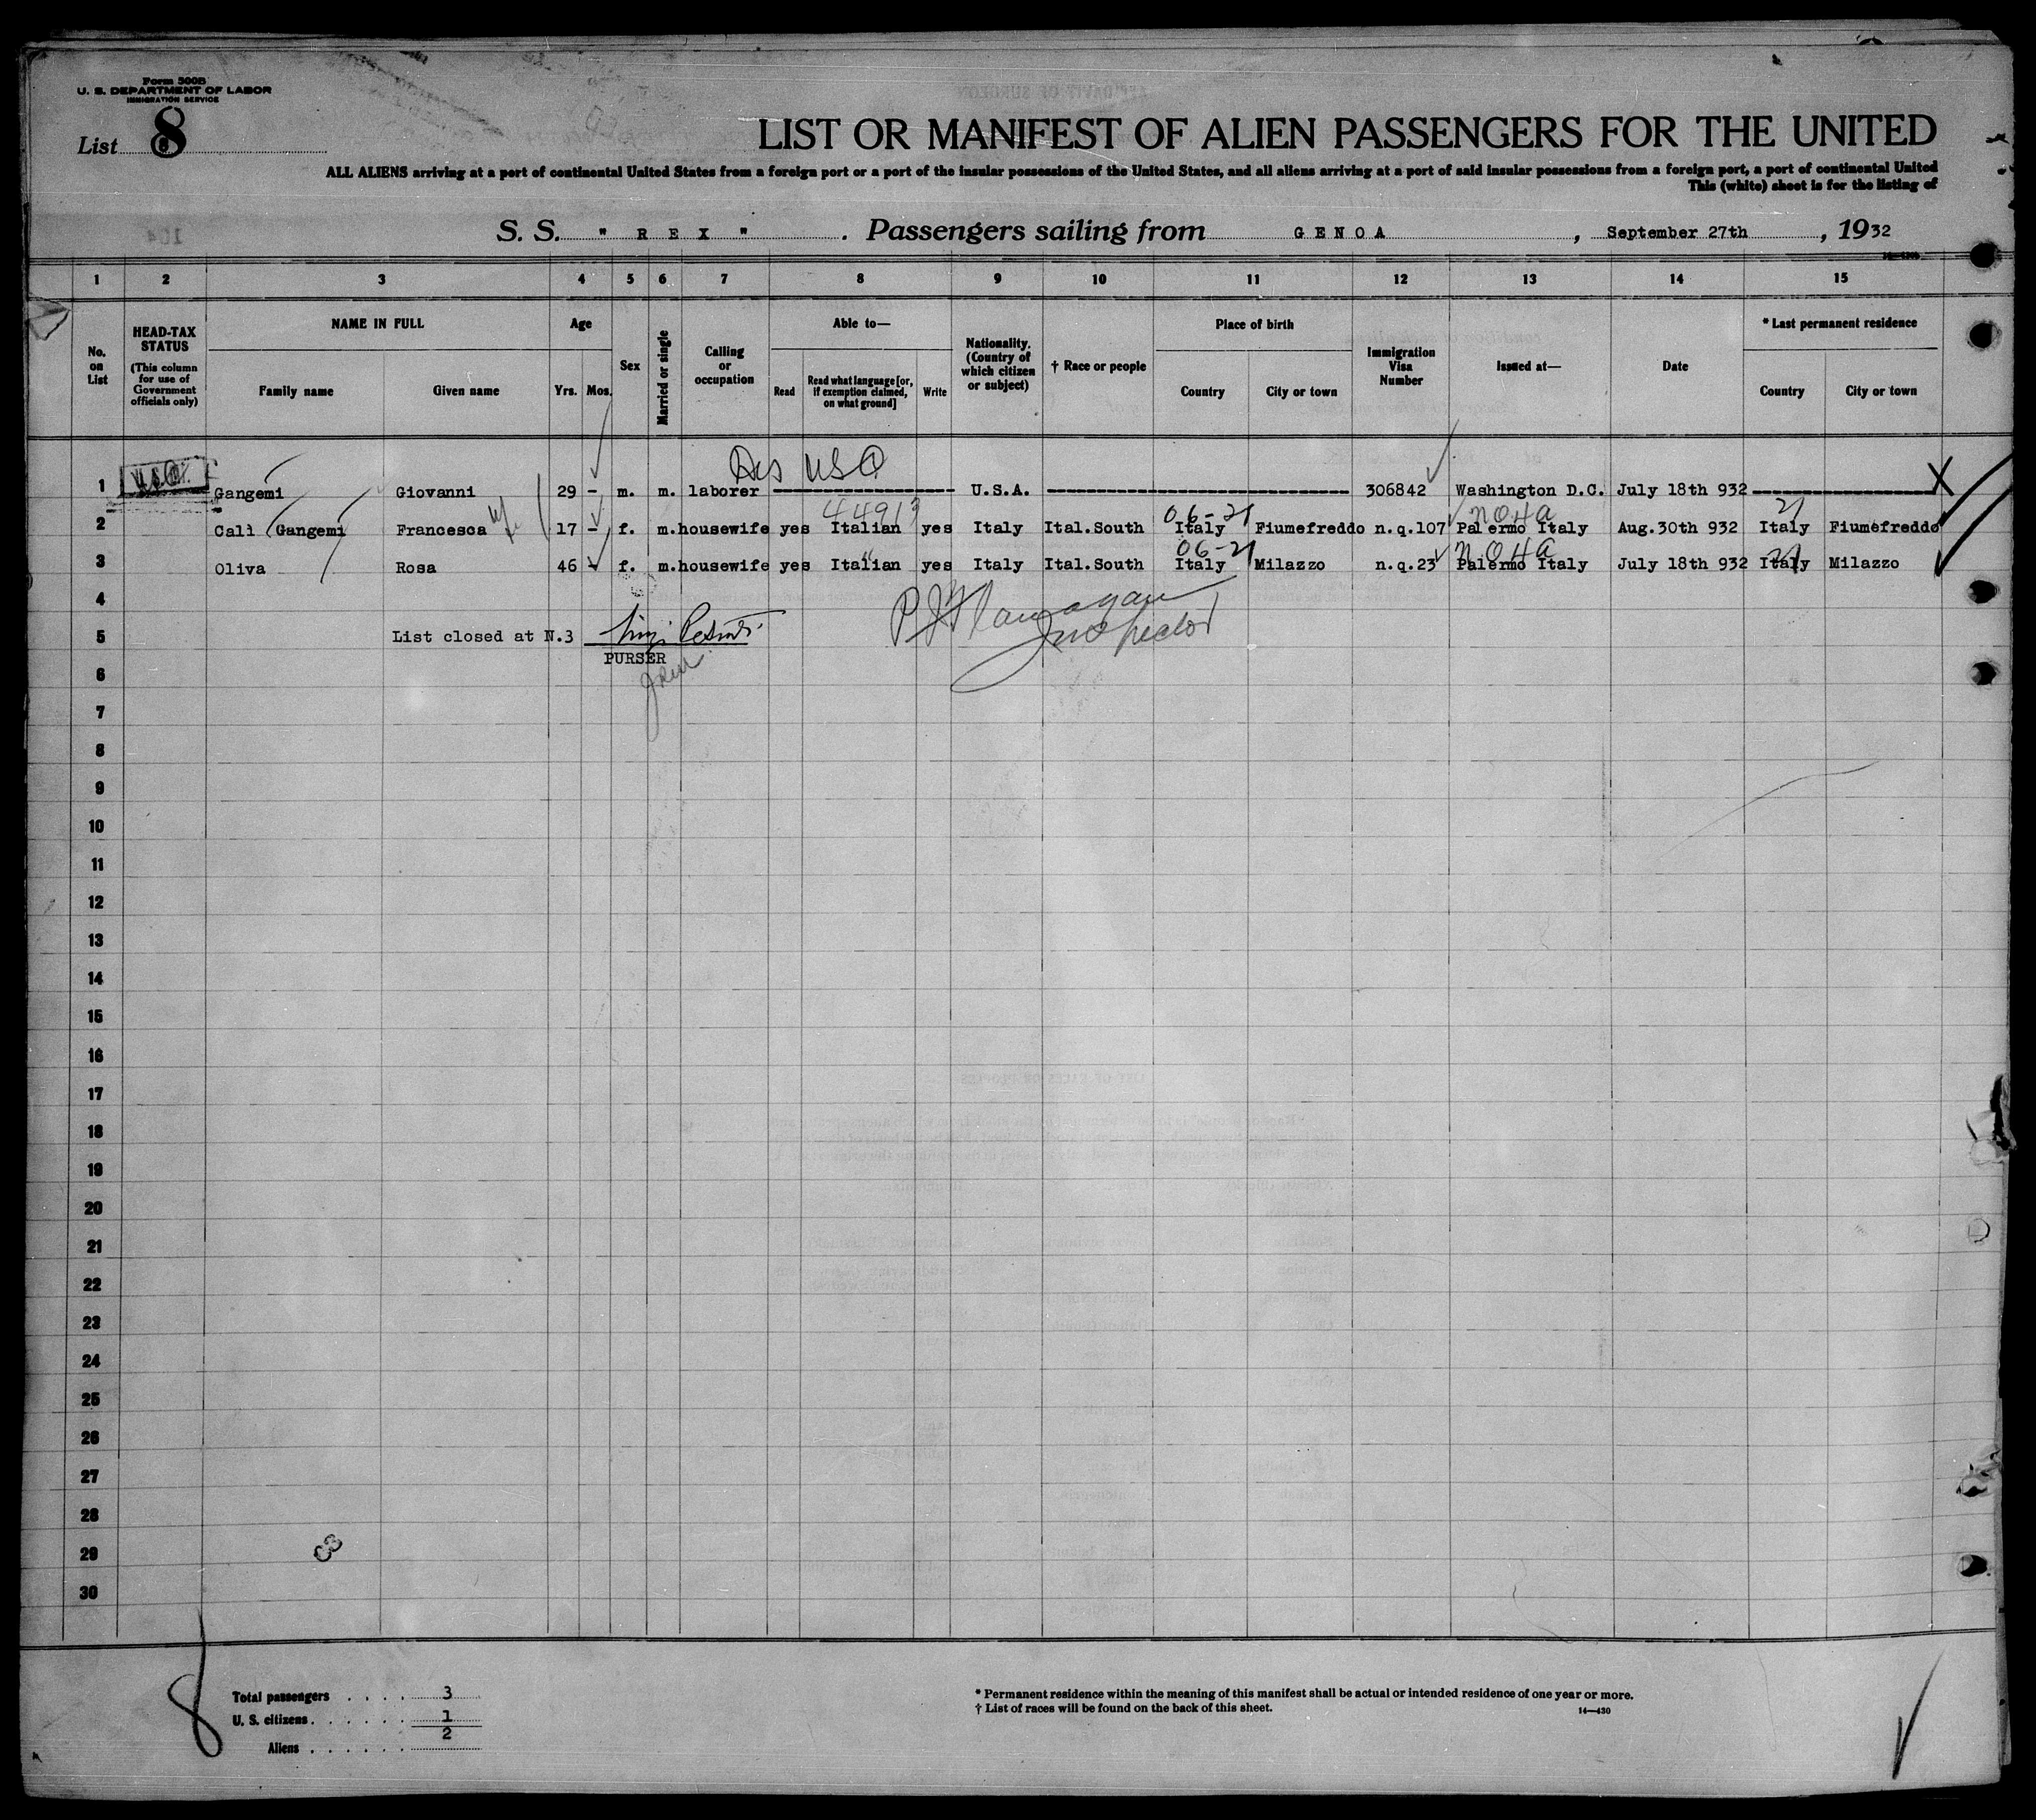 Form 500B
U. S. DEPARTMENT OF LABOR
IMMIGRATION SERVICE
List 8
LIST OR MANIFEST OF ALIEN PASSENGERS FOR THE UNITED
ALL ALIENS arriving at a port of continental United States from a foreign port or a port of the insular possessions of the United States, and all aliens arriving at a port of said insular possessions from a foreign port, a port of continental United
This (white) sheet is for the listing of
S. S. " R E X " . Passengers sailing from G E N O A , September 27th , 1932
1 2 3 4 5 6 7 8 9 10 11 12 13 14 15
No. on List
HEAD-TAX STATUS
(This column for use of Government officials only)
NAME IN FULL
Family name
Given name
Age
Yrs. Mos.
Sex
Married or single
Calling or occupation
Able to—
Read
Read what language [or, if exemption claimed, on what ground]
Write
Nationality. (Country of which citizen or subject)
† Race or people
Place of birth
Country
City or town
Immigration Visa Number
Issued at—
Date
* Last permanent residence
Country
City or town
USC
1 Gangemi Giovanni 29 - m. m. laborer U.S.A. 306842 Washington D.C. July 18th 932 X
44913 06-21 NOHA 21
2 Calì Gangemi Francesca 17 - f. m. housewife yes Italian yes Italy Ital.South Italy Fiumefreddo n.q.107 Palermo Italy Aug.30th 932 Italy Fiumefreddo
" 06-21 NOHA 21
3 Oliva Rosa 46 - f. m. housewife yes Italian yes Italy Ital.South Italy Milazzo n.q.23 Palermo Italy July 18th 932 Italy Milazzo
4
5 List closed at N.3
Inspector
PURSER
6
7
8
9
10
11
12
13
14
15
16
17
18
19
20
21
22
23
24
25
26
27
28
29
30
8
Total passengers . . . . 3
U. S. citizens . . . . . . 1
Aliens . . . . . . 2
* Permanent residence within the meaning of this manifest shall be actual or intended residence of one year or more.
† List of races will be found on the back of this sheet.
14—430